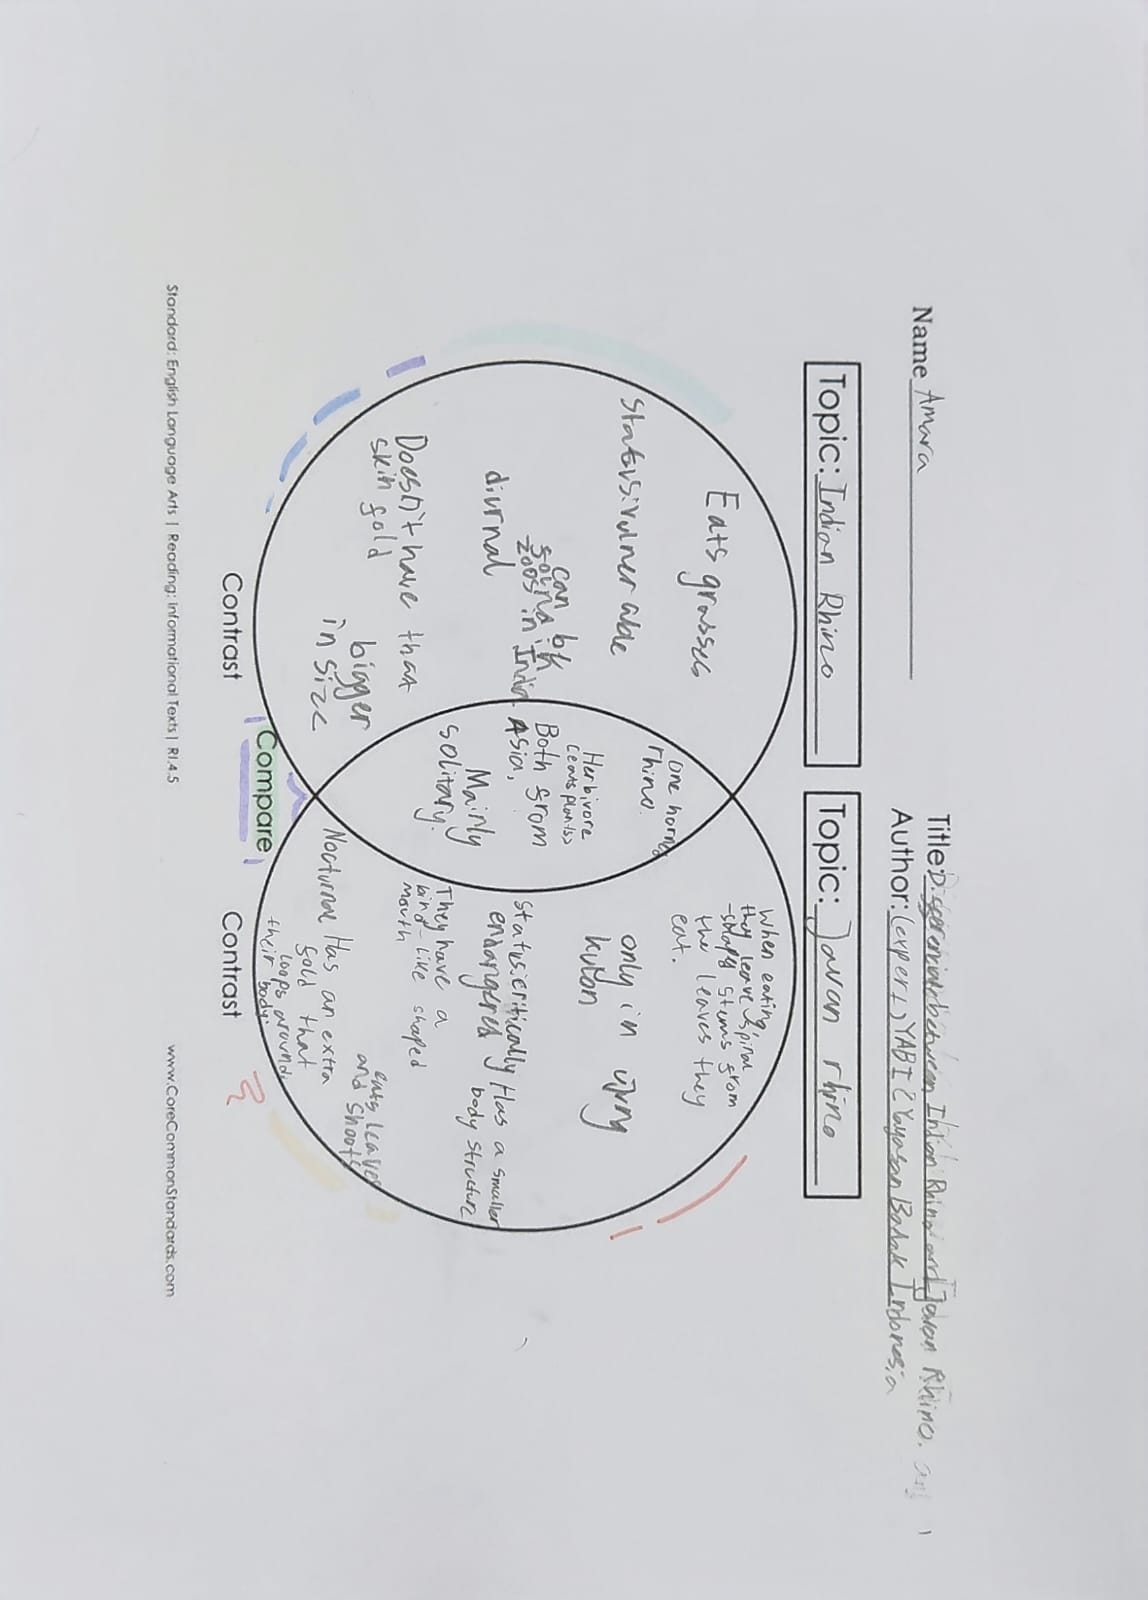 Name Amara
Title: Diggerence between Indian Rhino and Javan Rhino.
Author: (expert), YABI (Yayasan Badak Indonesia
Topic: Indian Rhino
Topic: Javan rhino
Eats grasses
Status: vulnerable
can be
found in
zoos in India
diurnal
Doesn't have that
skin fold
bigger
in size
one horn
rhino.
Herbivore
(eats plants)
Both from
Asia.
Mainly
solitary.
When eating,
they leave spiral
-shape stems from
the leaves they
eat.
only in ujung
kulon
Status: critically
endangered
Has a smaller
body structure
They have a
bird-like shaped
mouth
eats leaves
and shoots
Nocturnal
Has an extra
fold that
loops around
their body.
Contrast
Compare
Contrast
Standard: English Language Arts | Reading: Informational Texts | RI.4.5
www.CoreCommonStandards.com